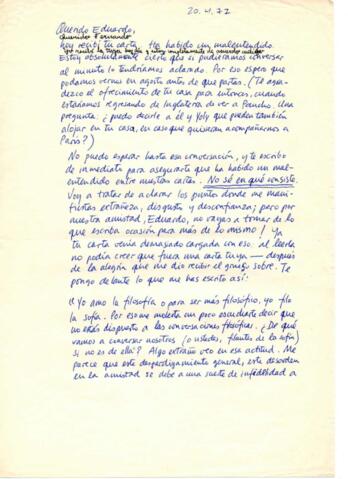 20.4.77
Querido Eduardo,
Querido Fernando
hoy recibí tu carta. Ha habido un malentendido.
Yo recibí la tuya hoy y estoy completamente de acuerdo contigo
Estoy absolutamente cierto que si pudiéramos conversar
al minuto lo tendríamos aclarado. Por eso espero que
podamos vernos en agosto antes de que partas. (Te agra-
dezco el ofrecimiento de tu casa para entonces, cuando
estaríamos regresando de Inglaterra de ver a Pancho. Una
pregunta: ¿puedo decirle a él y Yoly que pueden también
alojar en tu casa, en caso que quisieran acompañarnos a
París?)
No puedo esperar hasta esa conversación, y te escribo
de inmediato para asegurarte que ha habido un mal-
entendido entre nuestras cartas. No sé en qué consiste.
Voy a tratar de aclarar los puntos donde me mani-
fiestas extrañeza, disgusto y desconfianza; pero por
nuestra amistad, Eduardo, no vayas a tomar de lo
que escriba ocasión para más de lo mismo! Ya
tu carta venía demasiado cargada con eso: al leerla
no podía creer que fuera una carta tuya — después
de la alegría que me dio recibir el grueso sobre. Te
pongo delante lo que me has escrito así:
"Yo amo la filosofía o para ser más filosófico, yo filo
la sofía. Por eso me molesta un poco escucharte decir que
no estás dispuesto a las conversaciones filosóficas. ¿De qué
vamos a conversar nosotros (o ustedes, filantes de la sofía)
si no es de ella? Algo extraño veo en esa actitud. Me
parece que este desperdigamiento general, este desorden
en la amistad se debe a una suerte de infidelidad a